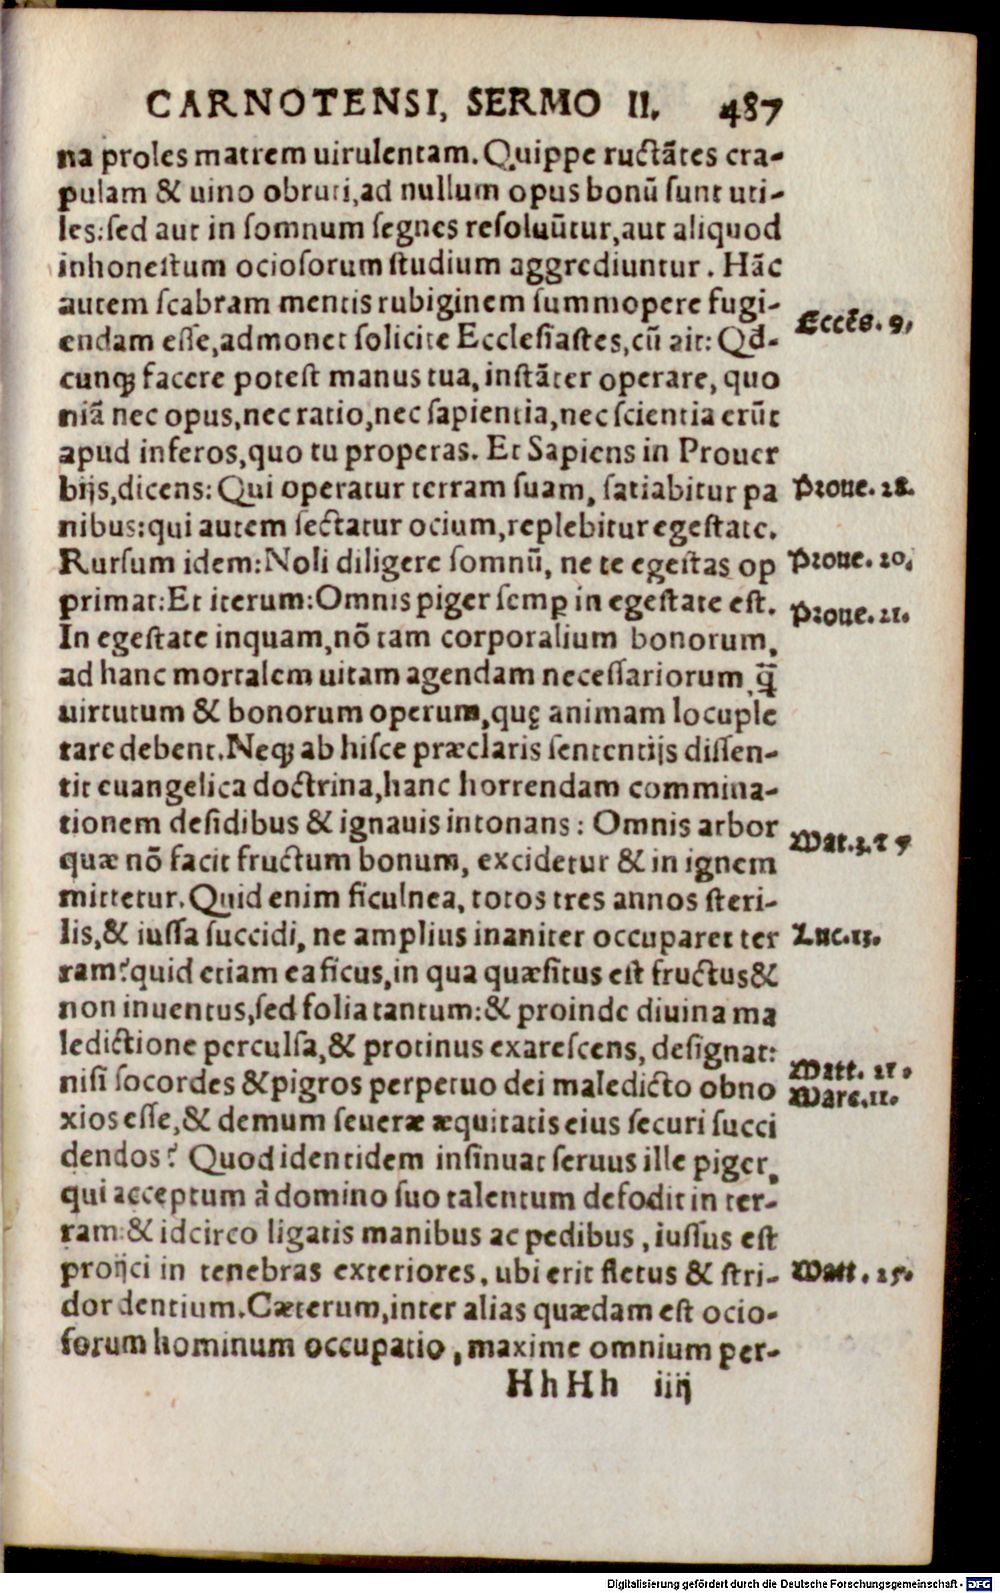 CARNOTENSI, SERMO II. 487
na proles matrem uirulentam. Quippe ructãtes cra-
pulam & uino obruti, ad nullum opus bonũ sunt uti-
les: sed aut in somnum segnes resoluũtur, aut aliquod
inhonestum ociosorum studium aggrediuntur. Hãc
autem scabram mentis rubiginem summopere fugi-
endam esse, admonet solicite Ecclesiastes, cũ ait: Qd-
Eccles. 9,
cunqꝫ facere potest manus tua, instãter operare, quo
niã nec opus, nec ratio, nec sapientia, nec scientia erũt
apud inferos, quo tu properas. Et Sapiens in Prouer
bijs, dicens: Qui operatur terram suam, satiabitur pa
Proue. 28.
nibus: qui autem sectatur ocium, replebitur egestate.
Rursum idem: Noli diligere somnũ, ne te egestas op
Proue. 20.
primat: Et iterum: Omnis piger semꝑ in egestate est.
Proue. 21.
In egestate inquam, nõ tam corporalium bonorum,
ad hanc mortalem uitam agendam necessariorum, q̃
uirtutum & bonorum operum, quę animam locuple
tare debent. Neqꝫ ab hisce præclaris sententijs dissen-
tit euangelica doctrina, hanc horrendam commina-
tionem desidibus & ignauis intonans: Omnis arbor
Mat. 3. & 7
quæ nõ facit fructum bonum, excidetur & in ignem
mittetur. Quid enim ficulnea, totos tres annos steri-
lis, & iussa succidi, ne amplius inaniter occuparet ter
Luc. 13.
ram? quid etiam ea ficus, in qua quæsitus est fructus &
non inuentus, sed folia tantum: & proinde diuina ma
ledictione perculsa, & protinus exarescens, designat:
Matt. 21,
nisi socordes & pigros perpetuo dei maledicto obno
Marc. 11.
xios esse, & demum seueræ æquitatis eius securi succi
dendos? Quod identidem insinuat seruus ille piger,
qui acceptum à domino suo talentum defodit in ter-
ram: & idcirco ligatis manibus ac pedibus, iussus est
proijci in tenebras exteriores, ubi erit fletus & stri-
Matt. 25.
dor dentium. Cæterum, inter alias quædam est ocio-
sorum hominum occupatio, maxime omnium per-
HhHh iiij
Digitalisierung gefördert durch die Deutsche Forschungsgemeinschaft - DFG